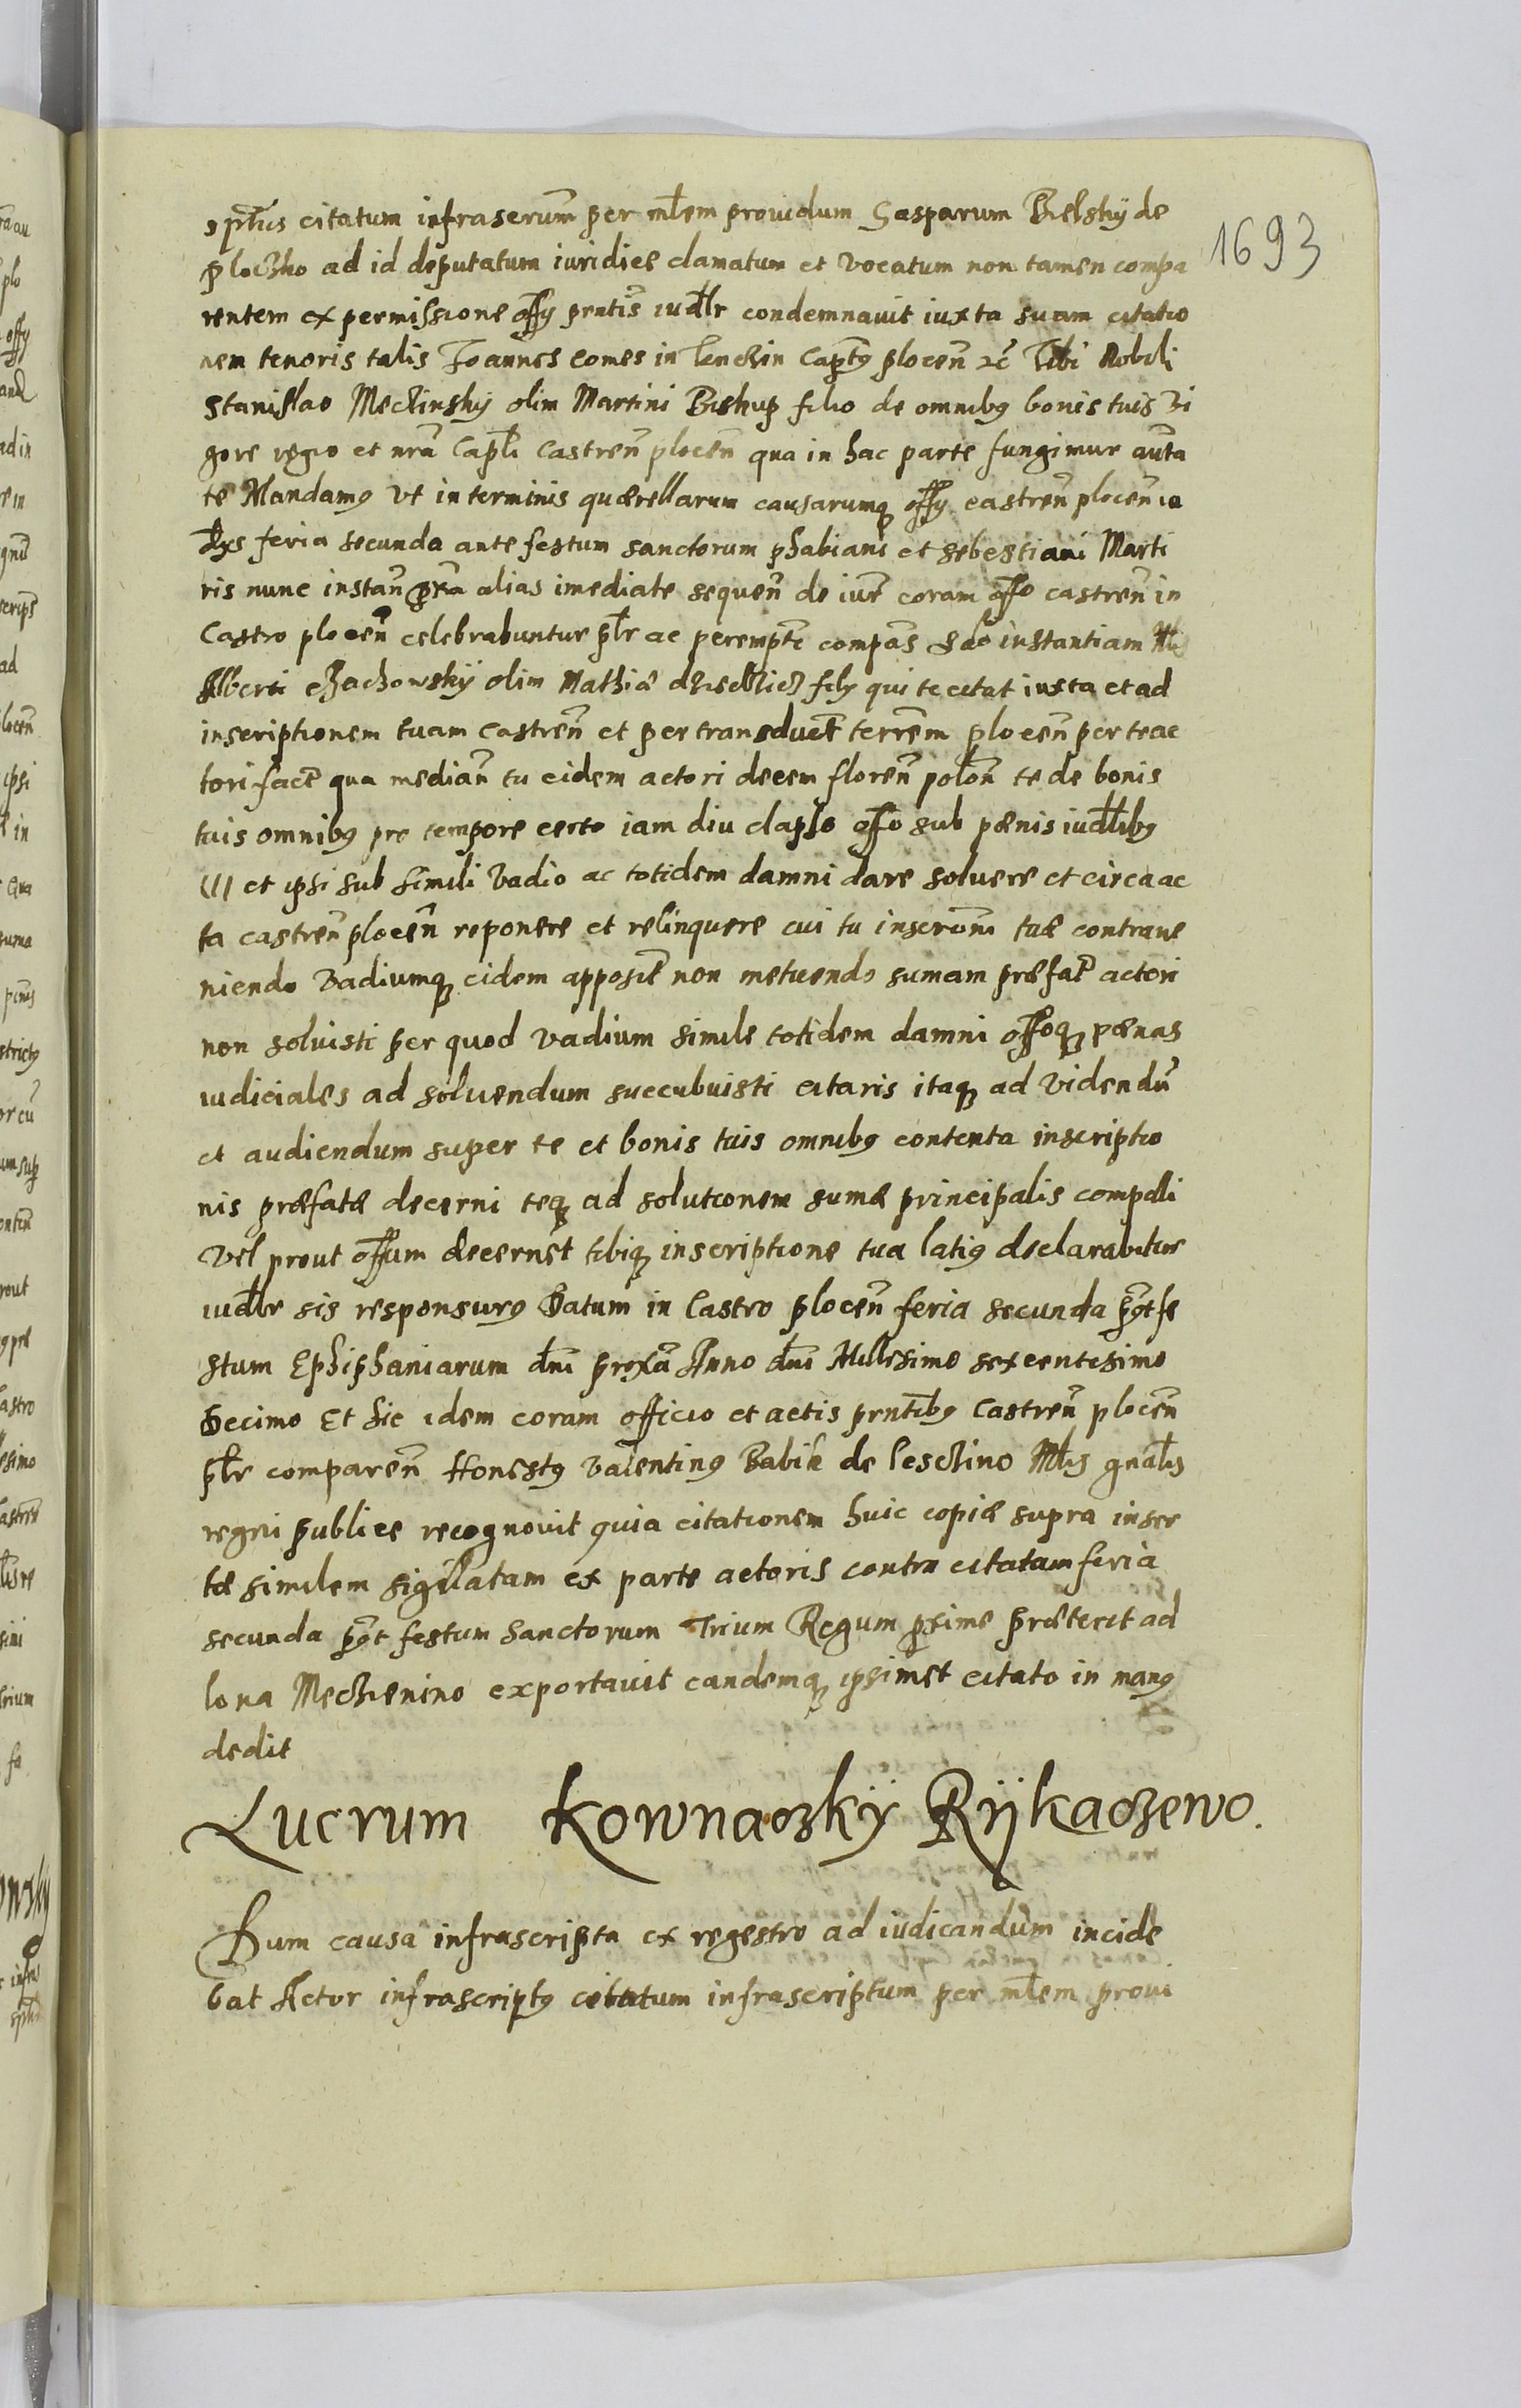 citatum infrascrum per mlem prouidum Gasparum Bielskÿ de
1693
ploczko ad id deputatum iuridice clamatum et vocatum non tamen compa
rentem ex permissione offy prntis iudlr condemnauit iuxta suam citatio
nem tenoris talis Joannes comes in Tenczin Capty plocen Tibi Nobili
Stanislao Meczinskÿ olim Martini Biskup filio de omniby bonis tuis Vi
gore regio et nra Capli Castren plocen qua in hac parte fungimur auta
te Mandamy vt in terminis quærellarum causarumq offy castren plocen
feria secunda ante festum sanctorum phabiani et sebestiani Marti
ris nunc instan alias imediate sequen de iure coram offo castren in
Castro plocen celebrabuntur plr ac perempte compas instantiam
Alberti olim Mathiæ fily qui te citat iuxta et ad
inscriptionem tuam Castren et per transduct terrem plocen per te ac
tori fact qua median tu eidem actori decem floren polon te de bonis
tuis omniby pro tempore certo iam diu elapso offo sub pænis iudliby
et ipsi sub simili vadio ac totidem damni dare soluere et circa ac
ta castren plocen reponere et relinquere cui tu inscrioni tuæ contraue
niendo vadiumq eidem apposit non metuendo sumam præfat actori
non soluisti per quod vadium simile totidem damni offoq pænas
iudiciales ad soluendum succubuisti citaris itaq ad videndu
et audiendum super te et bonis tuis omniby contenta inscriptio
nis præfatæ decerni teq ad solutionem sumæ principalis compelli
vel prout offum decernet tibiq inscriptione tua latiy declarabitur
iudlr sis responsury Datum in Castro plocen feria secunda post fe
stum Ephiphaniarum dni proxa Anno dni Millesimo sexcentesimo
Decimo Et hic idem coram officio et actis prntiby Castren plocen
plr comparen Honesty Valentiny Babik de lesczino Mlis gnalis
regni publice recognouit quia citationem huic copiæ supra inser
tæ similem sigillatam ex parte actoris contra citatam feria
secunda post festum Sanctorum Trium Regum pxime præterit ad
bona Meczenino exportauit eandemq ipsimet citato in many
dedit
Lucrum Kownaczkÿ Rÿkaczewo.
Dum causa infrascripta ex regestro ad iudicandum incide
bat Actor infrascripty citatum infrascriptum per mlem proui